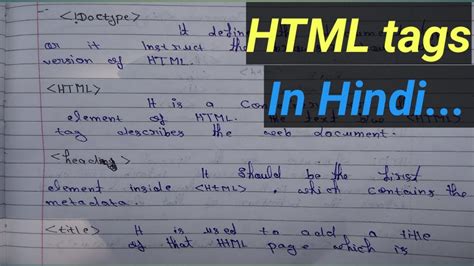 HTML tags
In Hindi...
<!Doctype>
It define the
or it Instruct the
version of HTML.
<HTML>
It is a
element of HTML. The
tag describes the web document.
<heading>
It Should be the first
element inside <HTML>. which contains the
metadata.
<title> It is used to add a title
of that HTML page which is